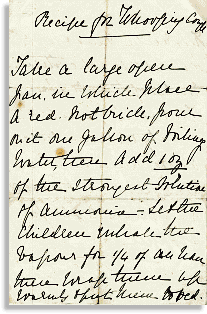 Recipe for Whooping Cough
Take a large open
pan, in which place
a red hot brick, pour
on it one gallon of boiling
water, then add 1 oz
of the strongest solution
of Ammonia - Let the
children inhale the
vapour for ¼ of an hour
then wrap them up
warmly & put them to bed.